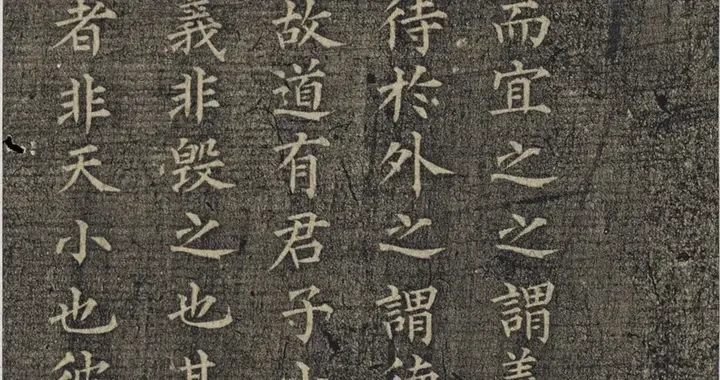 而宜之之謂義
待於外之謂德
故道有君子小
義非毀之也其
者非天小也彼